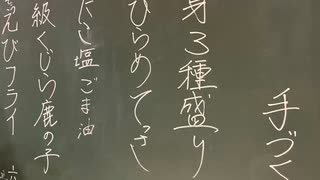 手づく
身3種盛り
ひらめてっさ
にし塩ごま油
級くじら鹿の子
えびフライ